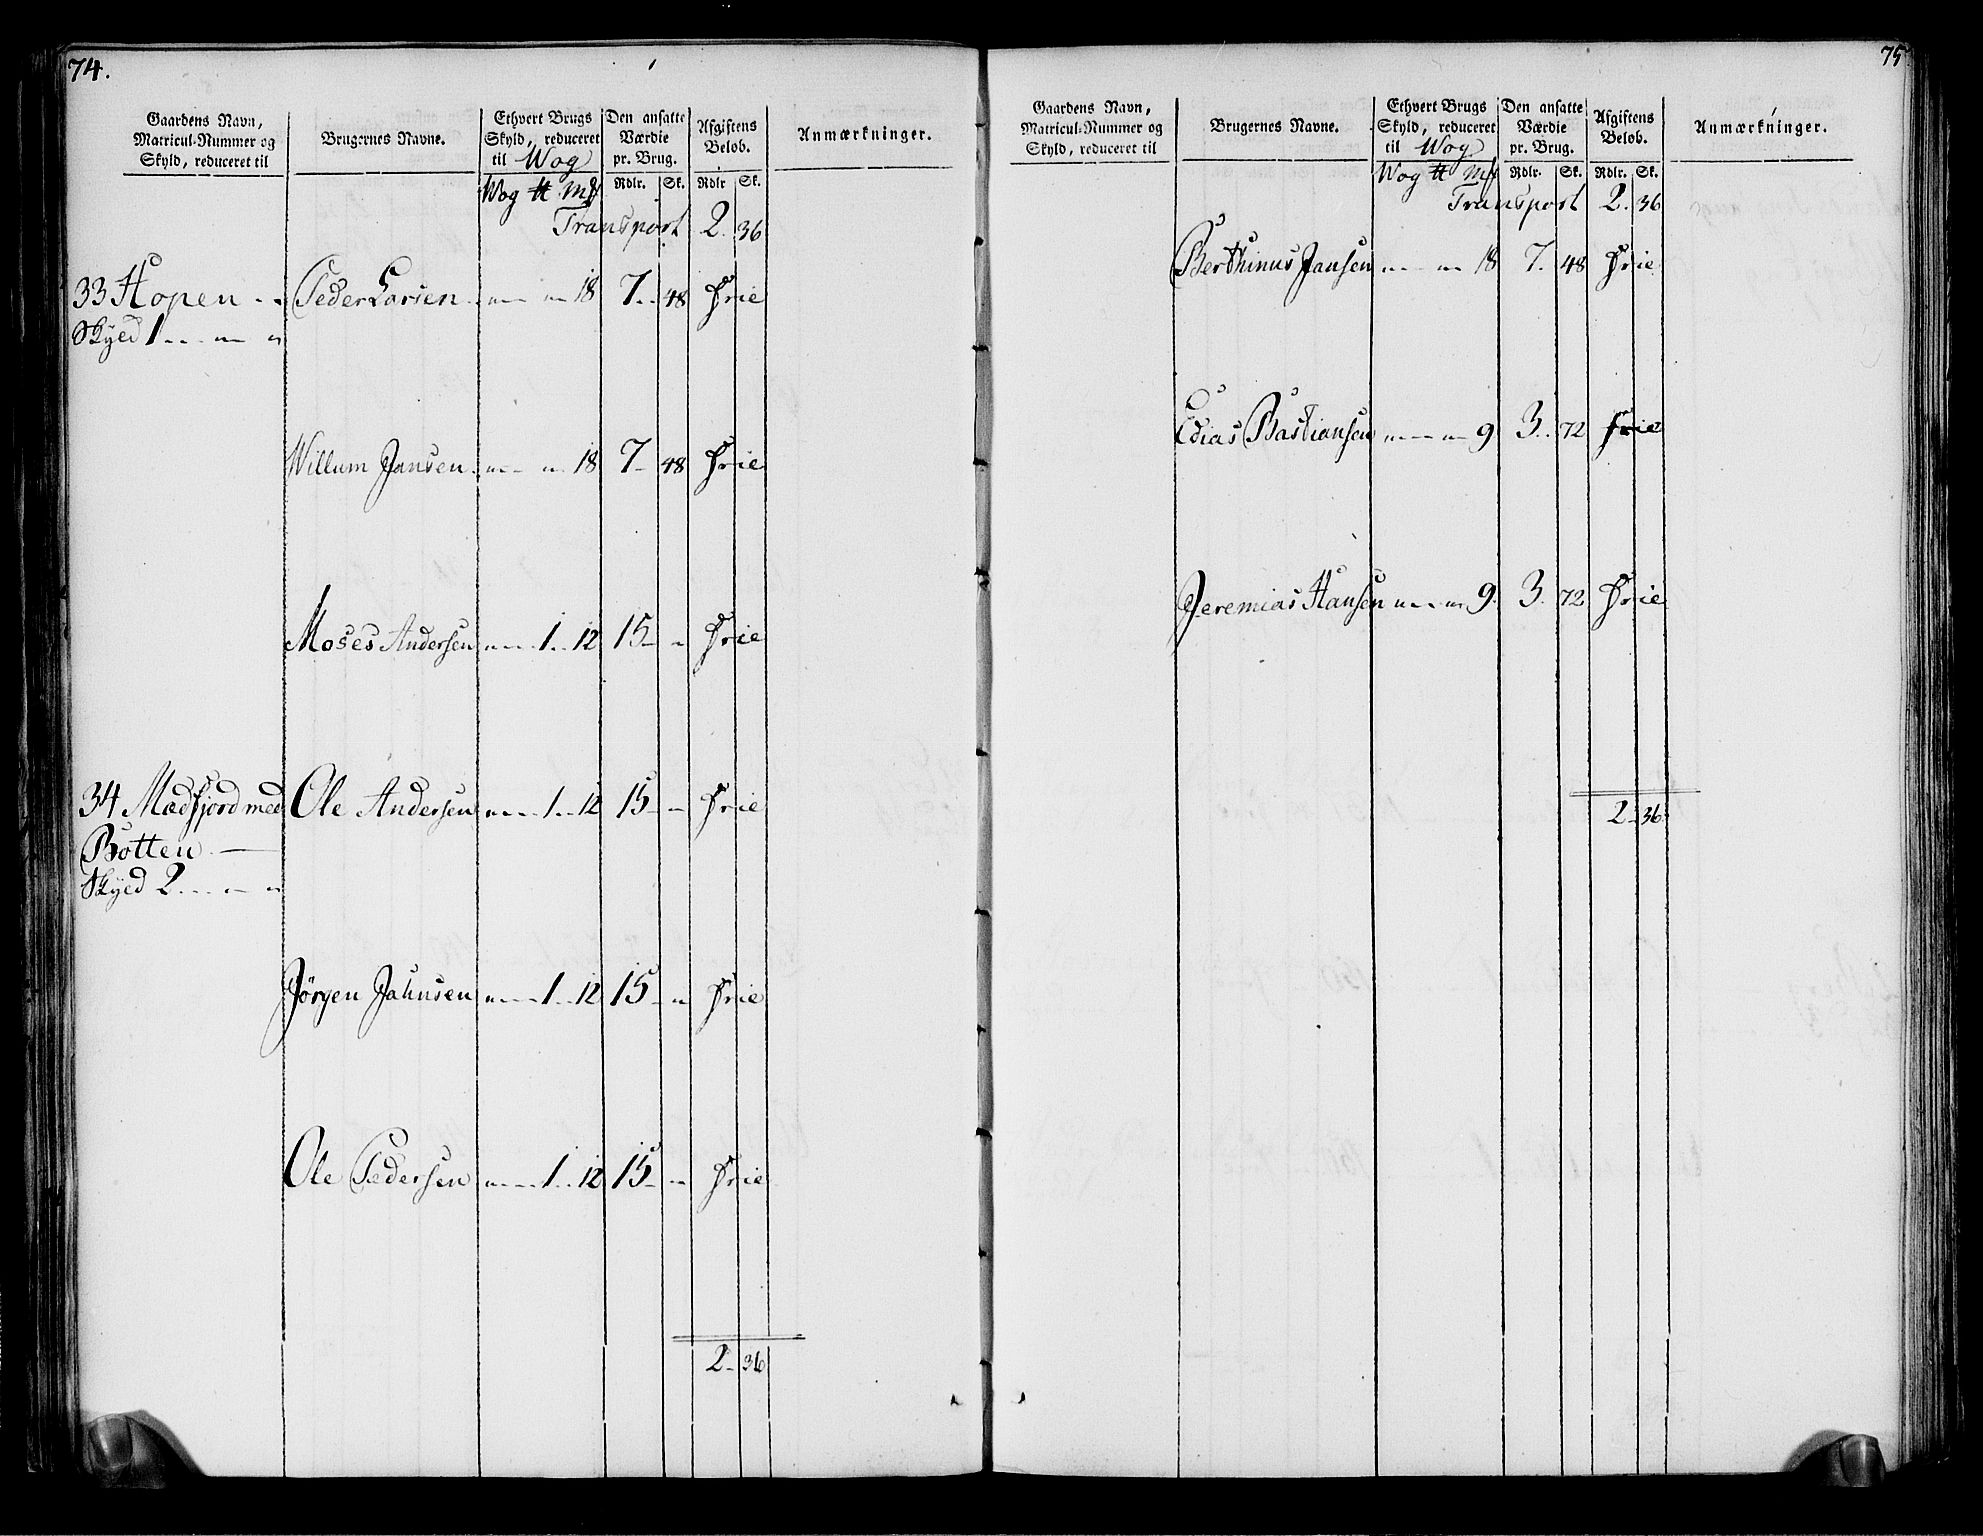 74.
Gaardens Navn, Matricul-Nummer og Skyld, reduceret til
Brugernes Navne.
Ethvert Brugs Skyld, reduceret til Wog
Den ansatte Værdie pr. Brug.
Afgiftens Beløb.
Anmærkninger.
Wog ℔ Mk Rdlr. Sk. Rdlr Sk.
Transport 2. 36
33 Hopen - - Peder Larsen - - - 18 7 - 48 Frie
Skyld 1 - - -
Willum Jansen - - - 18 7 - 48 Frie
Moses Andersen - - - 1 - 12 15 - - Frie
34 Madfjord med Ole Andersen - - - 1 - 12 15 - - Frie
Botten -
Skyld 2 - - -
Jörgen Jahnsen - - - 1 - 12 15 - - Frie
Ole Pedersen - - - 1 - 12 15 - - Frie
2 - 36
75
Gaardens Navn, Matricul-Nummer og Skyld, reduceret til
Brugernes Navne.
Ethvert Brugs Skyld, reduceret til Wog
Den ansatte Værdie pr. Brug.
Afgiftens Beløb.
Anmærkninger.
Wog ℔ Mk Rdlr. Sk. Rdlr. Sk.
Transport 2. 36
Berthinus Jansen - - - 18 7. 48 Frie
Edias Bastiansen - - - 9 3. 72 frie
Jeremias Hansen - - - 9. 3. 72 Frie
2 - 36